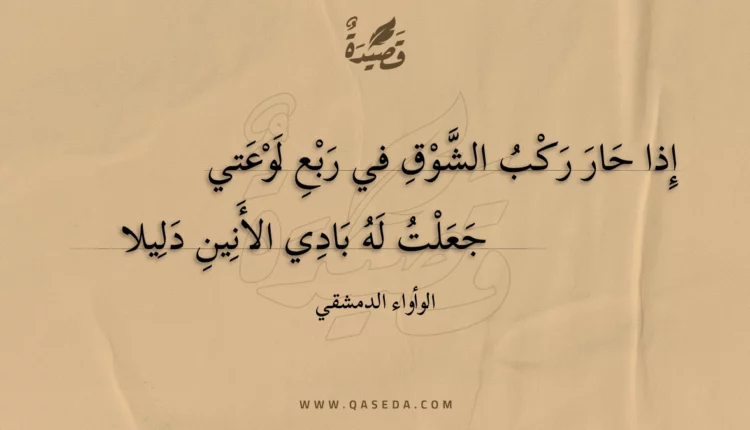 قَصِيدَةٌ
إِذا حَارَ رَكْبُ الشَّوْقِ في رَبْعِ لَوْعَتي
جَعَلْتُ لَهُ بَادِي الأَنِينِ دَلِيلا
الوأواء الدمشقي
WWW.QASEDA.COM